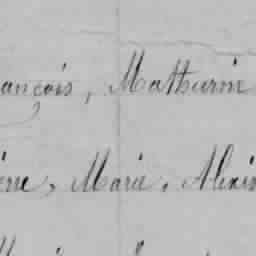 ançois, Mathurin
erre, Marie, Alexis